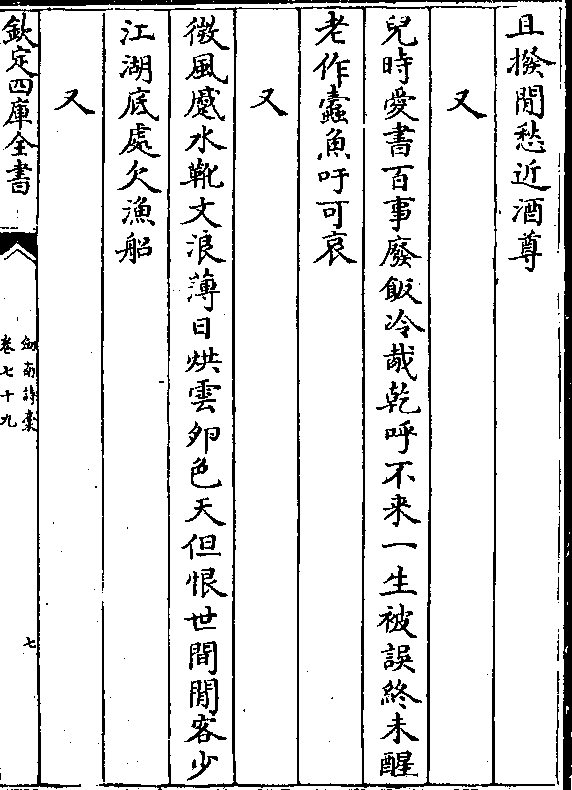 且撥閒愁近酒尊
又
兒時愛書百事廢飯冷胾乾呼不来一生被誤終未醒
老作蠹魚吁可哀
又
微風蹙水靴文浪薄日烘雲卵色天但恨世間閒客少
江湖底處欠漁船
又
欽定四庫全書
劍南詩稾
卷七十九
七